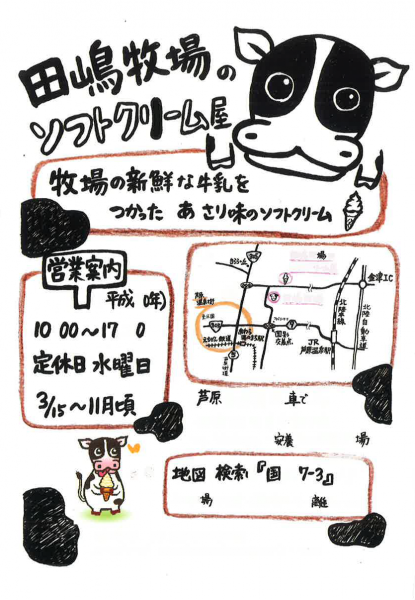 田嶋牧場の
ソフトクリーム屋
牧場の新鮮な牛乳を
つかった あさり味のソフトクリーム
営業案内
平成 0年)
10 00～17 0
定休日 水曜日
3/15～11月頃
場
金津IC
北陸本線
北陸自動車道
国影交差点
JR
芦原温泉駅
芦原 車で
安養 場
地図 検索『国 7-3』
場 離